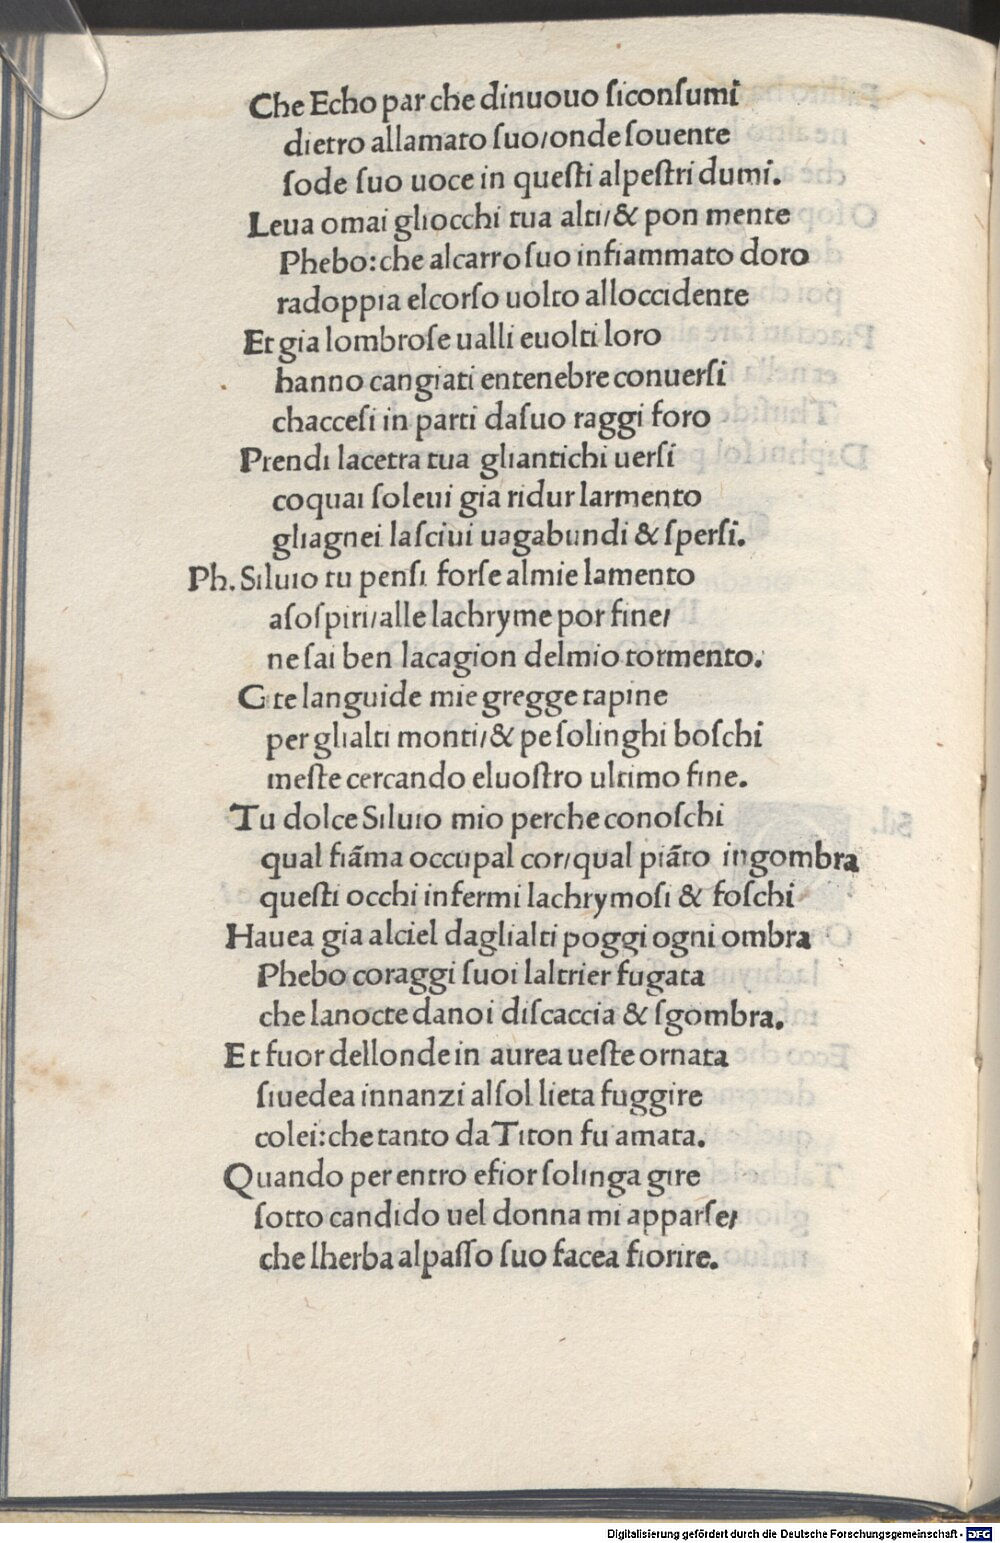 Che Echo par che dinuouo ſiconſumi
dietro allamato ſuo/onde ſouente
ſode ſuo uoce in queſti alpeſtri dumi.
Leua omai gliocchi tua alti/& pon mente
Phebo:che alcarro ſuo infiammato doro
radoppia elcorſo uolto alloccidente
Et gia lombroſe ualli euolti loro
hanno cangiati entenebre conuerſi
chacceſi in parti daſuo raggi foro
Prendi lacetra tua gliantichi uerſi
coquai ſoleui gia ridur larmento
gliagnei laſciui uagabundi & ſperſi.
Ph. Siluio tu penſi forſe almie lamento
aſoſpiri/alle lachryme por fine/
ne ſai ben lacagion delmio tormento.
Gite languide mie gregge tapine
per glialti monti/& pe ſolinghi boſchi
meſte cercando eluoſtro ultimo fine.
Tu dolce Siluio mio perche conoſchi
qual fiāma occupal cor/qual piāto ingombra
queſti occhi infermi lachrymoſi & foſchi
Hauea gia alciel daglialti poggi ogni ombra
Phebo coraggi ſuoi laltrier fugata
che lanocte danoi diſcaccia & ſgombra.
Et fuor dellonde in aurea ueſte ornata
ſiuedea innanzi alſol lieta fuggire
colei:che tanto da Titon fu amata.
Quando per entro efior ſolinga gire
ſotto candido uel donna mi apparſe/
che lherba alpaſſo ſuo facea fiorire.
Digitalisierung gefördert durch die Deutsche Forschungsgemeinschaft - DFG